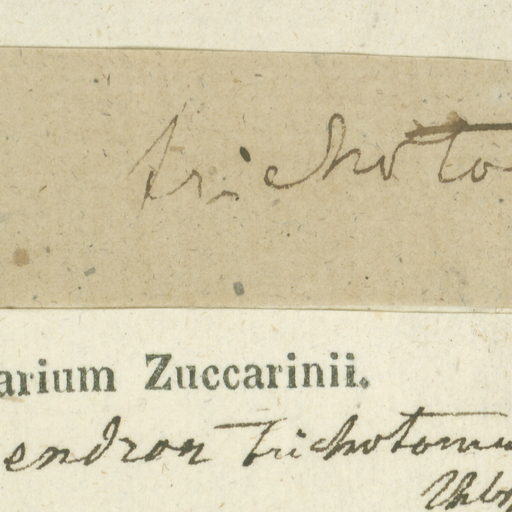 trichoto
arium Zuccarinii.
endron trichotomu